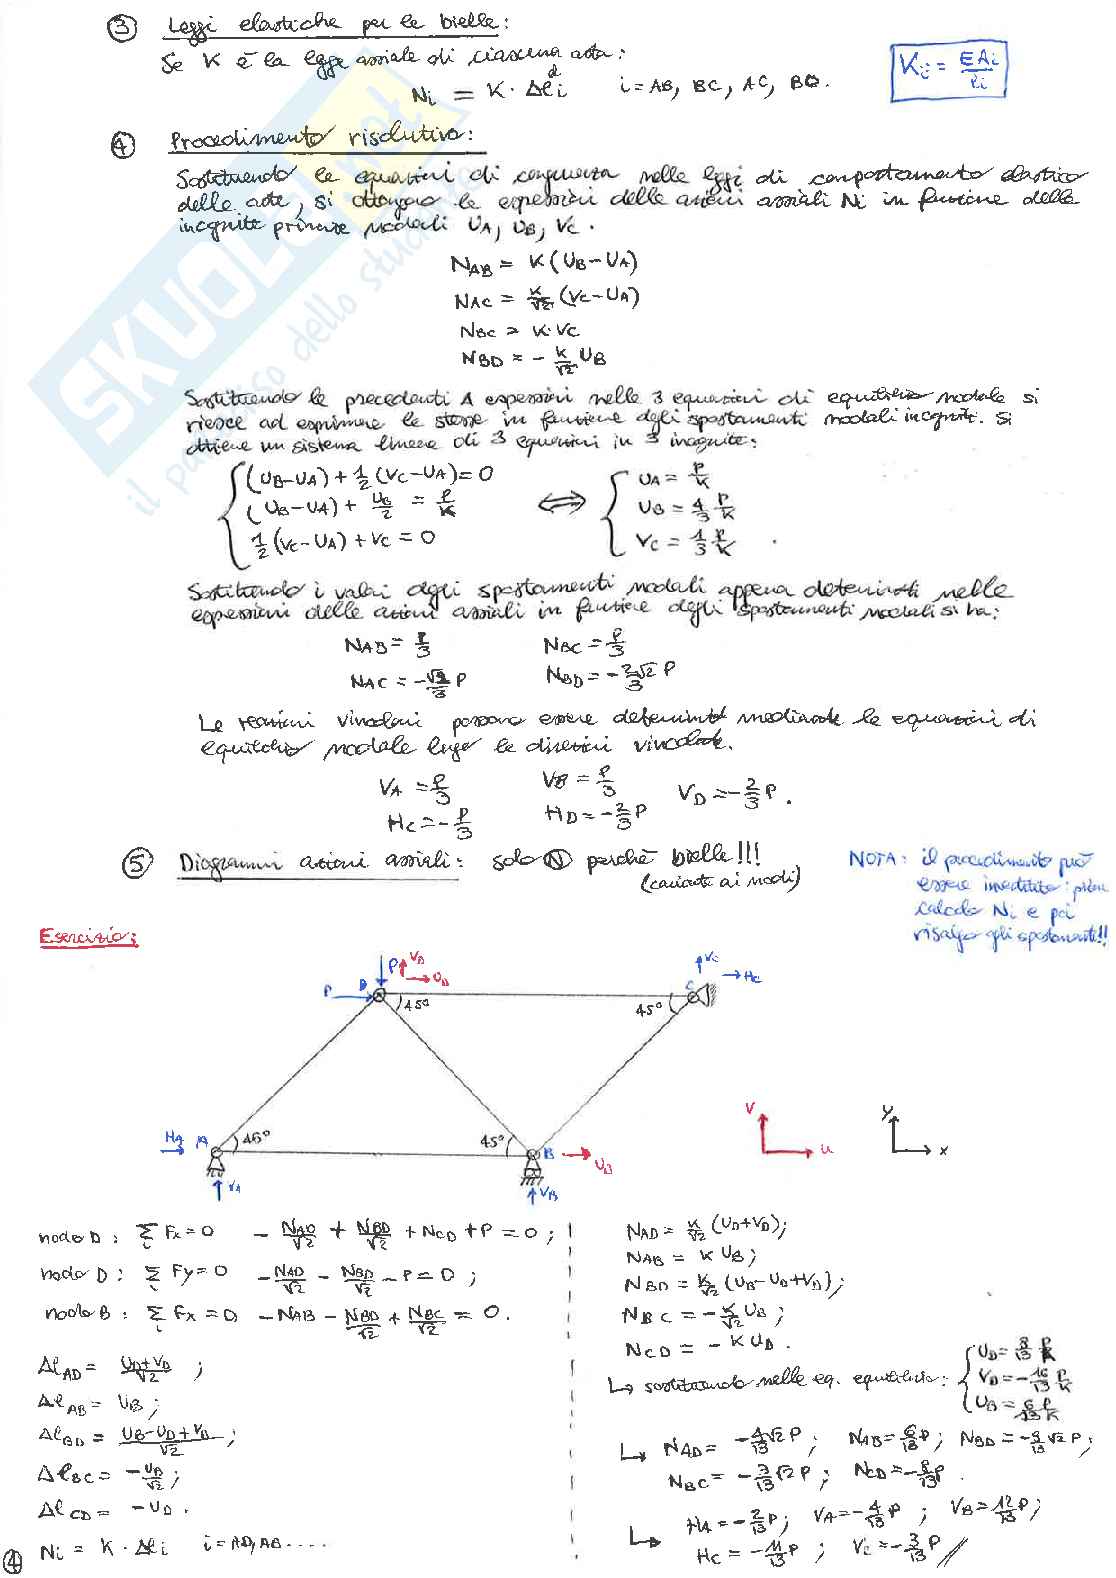 ③ Leggi elastiche per le bielle:
Se K è la legge assiale di ciascuna asta:
Ni = K · Δli^d    i = AB, BC, AC, BD.
Ki = EAi/li
④ Procedimento risolutivo:
Sostituendo le equazioni di congruenza nelle leggi di comportamento elastico
delle aste, si ottengono le espressioni delle azioni assiali Ni in funzione delle
incognite primarie nodali UA, UB, VC.
NAB = K(UB-UA)
NAC = K/√2 (VC-UA)
NBC = K·VC
NBD = - K/√2 UB
Sostituendo le precedenti 4 espressioni nelle 3 equazioni di equilibrio nodale si
riesce ad esprimere le stesse in funzione degli spostamenti nodali incogniti. Si
ottiene un sistema lineare di 3 equazioni in 3 incognite:
(UB-UA) + 1/2 (VC-UA) = 0
(UB-UA) + UB/2 = P/K
1/2 (VC-UA) + VC = 0
⇔
UA = P/K
UB = 4/3 P/K
VC = 1/3 P/K .
Sostituendo i valori degli spostamenti nodali appena determinati nelle
espressioni delle azioni assiali in funzione degli spostamenti nodali si ha:
NAB = P/3    NBC = P/3
NAC = -√2/3 P    NBD = -2√2/3 P
Le reazioni vincolari possono essere determinate mediante le equazioni di
equilibrio nodale lungo le direzioni vincolate.
VA = P/3    VB = P/3    VD = -2/3 P .
HC = -P/3    HD = -2/3 P
⑤ Diagrammi azioni assiali: solo N perché bielle!!!
(caricate ai nodi)
NOTA: il procedimento può
essere invertito: prima
calcolo Ni e poi
risalgo gli spostamenti!!
Esercizio:
P VD
P D UD
VC
C HC
45° 45°
HA A 45° 45° B UB
VA VB
V u
y x
nodo D: Σi Fx=0  - NAD/√2 + NBD/√2 + NCD + P = 0;
nodo D: Σi Fy=0  - NAD/√2 - NBD/√2 - P = 0;
nodo B: Σi Fx=0, - NAB - NBD/√2 + NBC/√2 = 0.
ΔlAD = UD+VD/√2 ;
ΔlAB = UB;
ΔlBD = UB-UD+VD/√2 ;
ΔlBC = - UB/√2 ;
ΔlCD = -UD .
Ni = K · Δli    i = AD, AB ....
NAD = K/√2 (UD+VD);
NAB = K UB;
NBD = K/√2 (UB-UD+VD);
NBC = - K/√2 UB;
NCD = - K UD .
↳ sostituendo nelle eq. equilibrio:
UD = 8/13 P/K
VD = -16/13 P/K
UB = 6/13 P/K
↳ NAD = -4√2/13 P ; NAB = 6/13 P; NBD = -9/13 √2 P;
NBC = -3/13 √2 P ; NCD = -8/13 P .
↳ HA = -2/13 P; VA = -4/13 P ; VB = 12/13 P;
HC = -11/13 P ; VC = -3/13 P //
④
SKUOLA.net
il paradiso dello studente